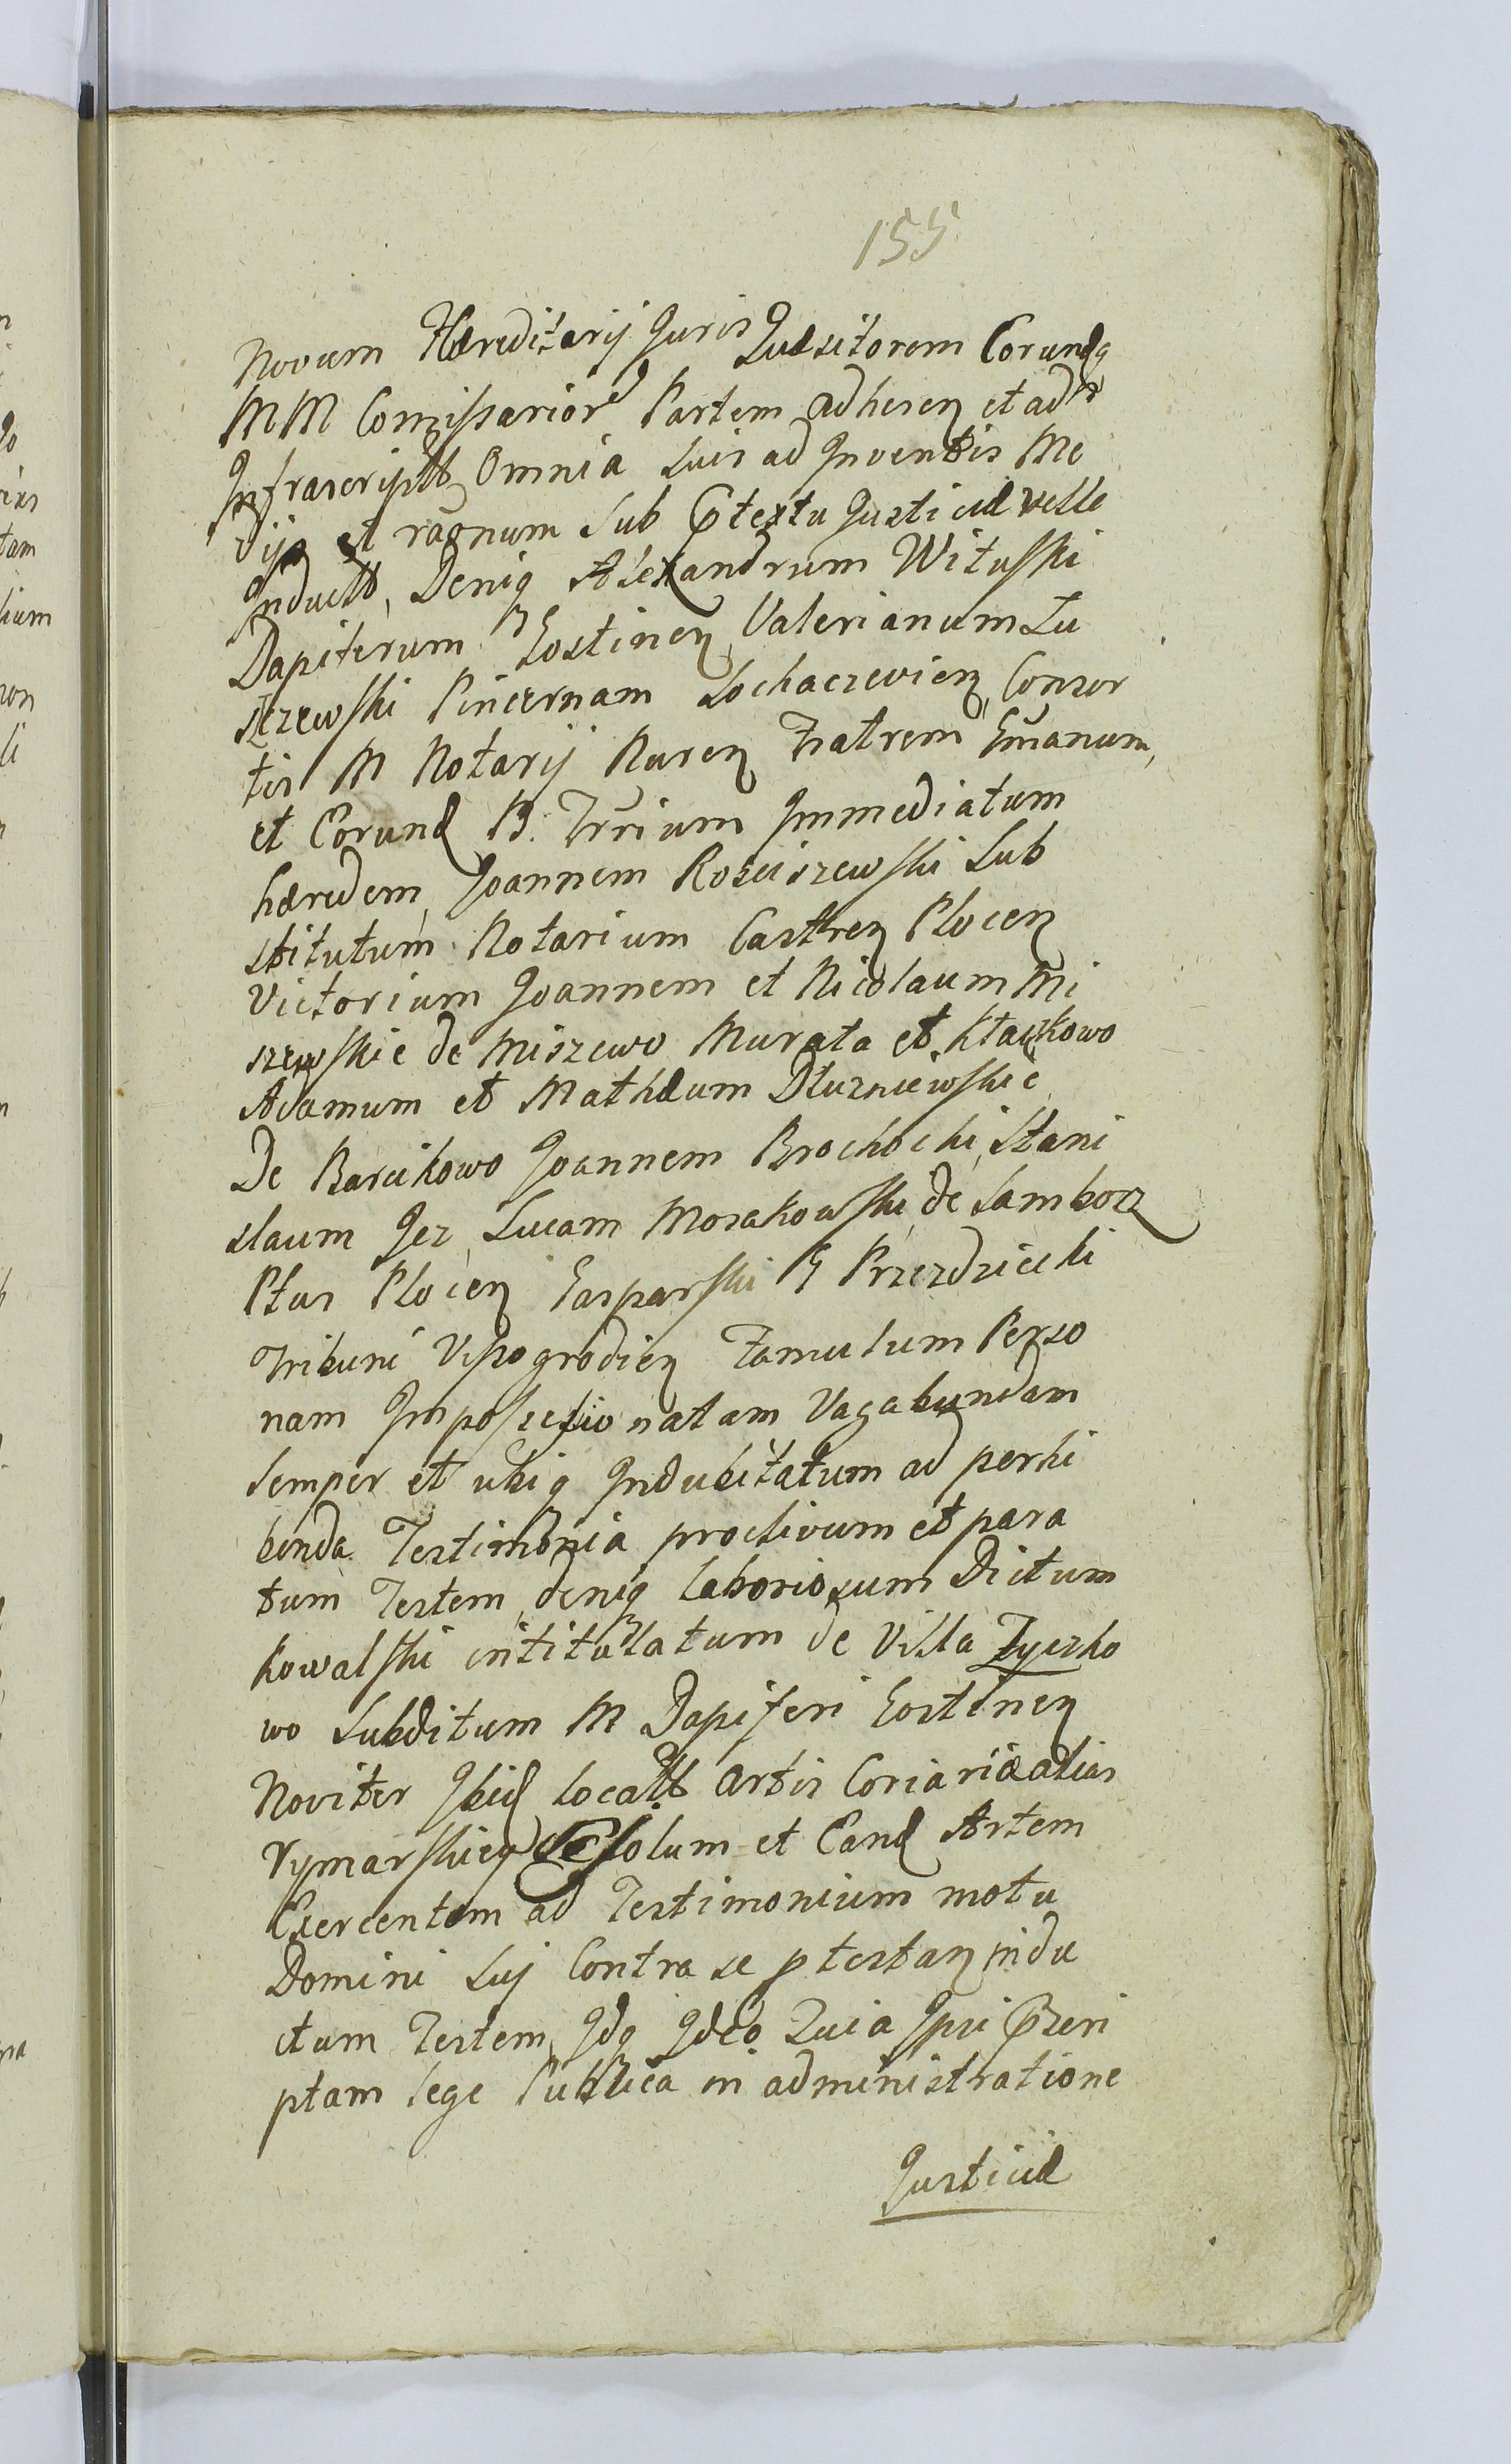 155
Novum Hæreditarij Juris Quæsitorem Eorundq
MM Comissarior Partem adheren et ad
Infrascriptt Omnia suis ad Inventis Me
dijs et rãonum sub Ptextu Justiciæ velle
Inductt, Deniq Alexandrum Wituski
Dapiferum Gostinen, Valerianum Lu
szczewski Pincernam Sochaczevien, Consor
tis M Notarij Nuren Fratrem Gmanum,
et Eorund B. Frrium Immediatum
hæredem, Joannem Rosciszewski Sub
stitutum Notarium Castren Plocen
Victorium Joannem et Nicolaum Mi
szewskie de Miszewo Murata et Kłaczkowo
Adamum et Mathæum Dłuzniewskie
De Barcikowo Joannem Brochocki, Stani
slaum Jez, Lucam Mosakowski, de Samborz
Ptus Plocen Gasparski G Przezdziecki
Tribuni Visogrodien Famulum Perso
nam Impossessionatam Vagabundam
semper et ubiq Indubitatum ad perhi
benda Testimonia proclivum et para
tum Testem, deniq laboriosum Dictum
Kowalski intitulatum de Villa Zyczko
wo Subditum M Dapiferi Gostinen
Noviter Ibid locatt Artis Coriariæ alias
Rymarskiey solum et Eand Artem
Exercentem ad Testimonium motu
Domini sui Contra se ptestan indu
ctum Testem, Idq Ideo Quia Ipsi Pscri
ptam lege Publica in administratione
Justiciæ